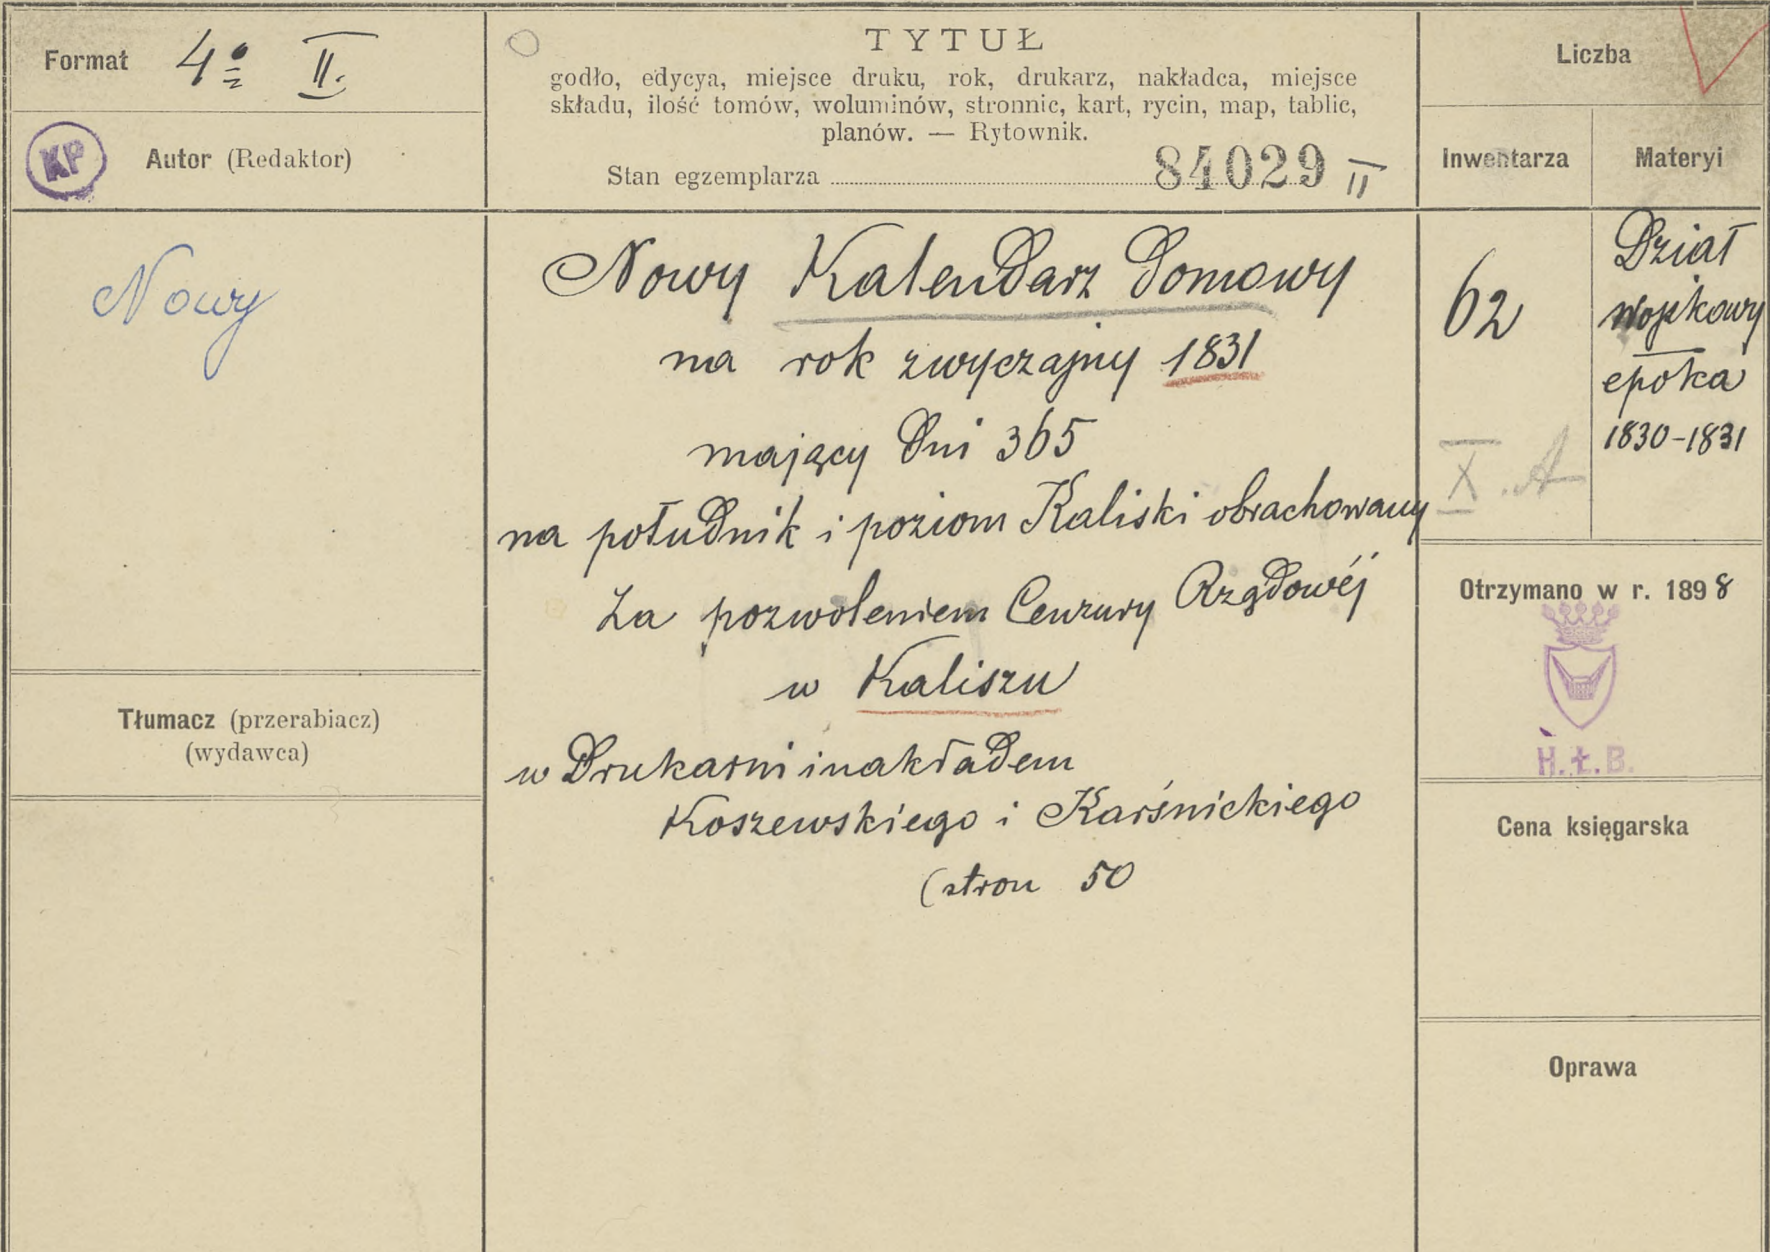 Format 4º II.
KP
Autor (Redaktor)
Nowy
Tłumacz (przerabiacz)
(wydawca)
TYTUŁ
godło, edycya, miejsce druku, rok, drukarz, nakładca, miejsce
składu, ilość tomów, woluminów, stronnic, kart, rycin, map, tablic,
planów. — Rytownik.
Stan egzemplarza 84029 II
Nowy Kalendarz Domowy
na rok zwyczajny 1831
mający Dni 365
na połuDnik i poziom Kaliski obrachowany
Za pozwoleniem Cenzury RząDowéj
w Kaliszu
w Drukarni i nakłaDem
Koszewskiego i Karśnickiego
(stron 50
Liczba
Inwentarza
Materyi
62
X. A
Dział
wojskowy
epoka
1830-1831
Otrzymano w r. 1898
H.Ł.B.
Cena księgarska
Oprawa